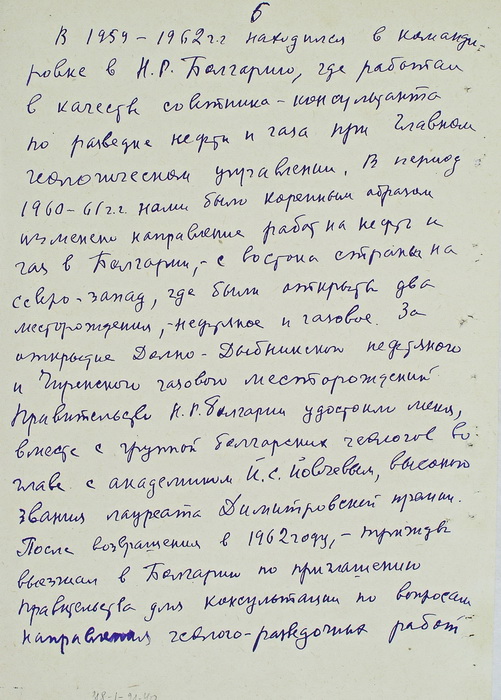 6
В 1959-1962 г.г находился в команди-
ровке в Н.Р. Болгарию, где работал
в качестве советника-консультанта
по разведке нефти и газа при Главном
геологическом управлении. В период
1960-61 г.г. нами было коренным образом
изменено направление работ на нефть и
газ в Болгарии, - с востока страны на
северо-запад, где были открыты два
месторождения, - нефтяное и газовое. За
открытие Долно-Дыбникского нефтяного
и Чиренского газового месторождений
Правительство Н.Р. Болгарии удостоило меня,
вместе с группой болгарских геологов во
главе с академиком Й.С. Йовчевым, высокого
звания лауреата Димитровской премии.
После возвращения в 1962 году, - трижды
выезжал в Болгарию по приглашению
правительства для консультации по вопросам
направления геолого-разведочных работ.